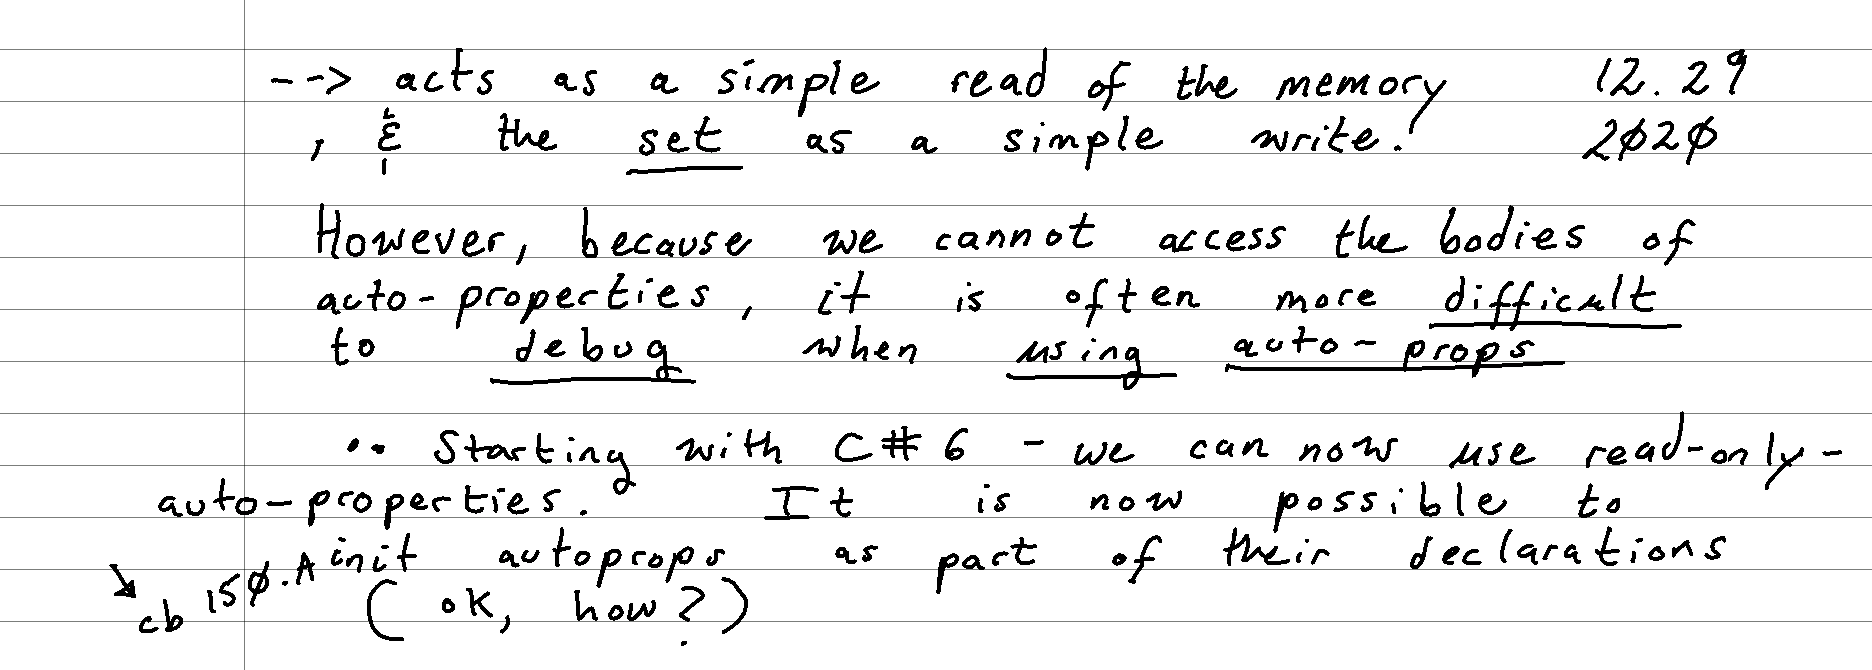 --> acts as a simple read of the memory 12.29
, & the set as a simple write! 2020
However, because we cannot access the bodies of
auto-properties, it is often more difficult
to debug when using auto-props
.. Starting with C# 6 - we can now use read-only-
auto-properties. It is now possible to
init autoprops as part of their declarations
↘ cb 150.A ( ok, how? )